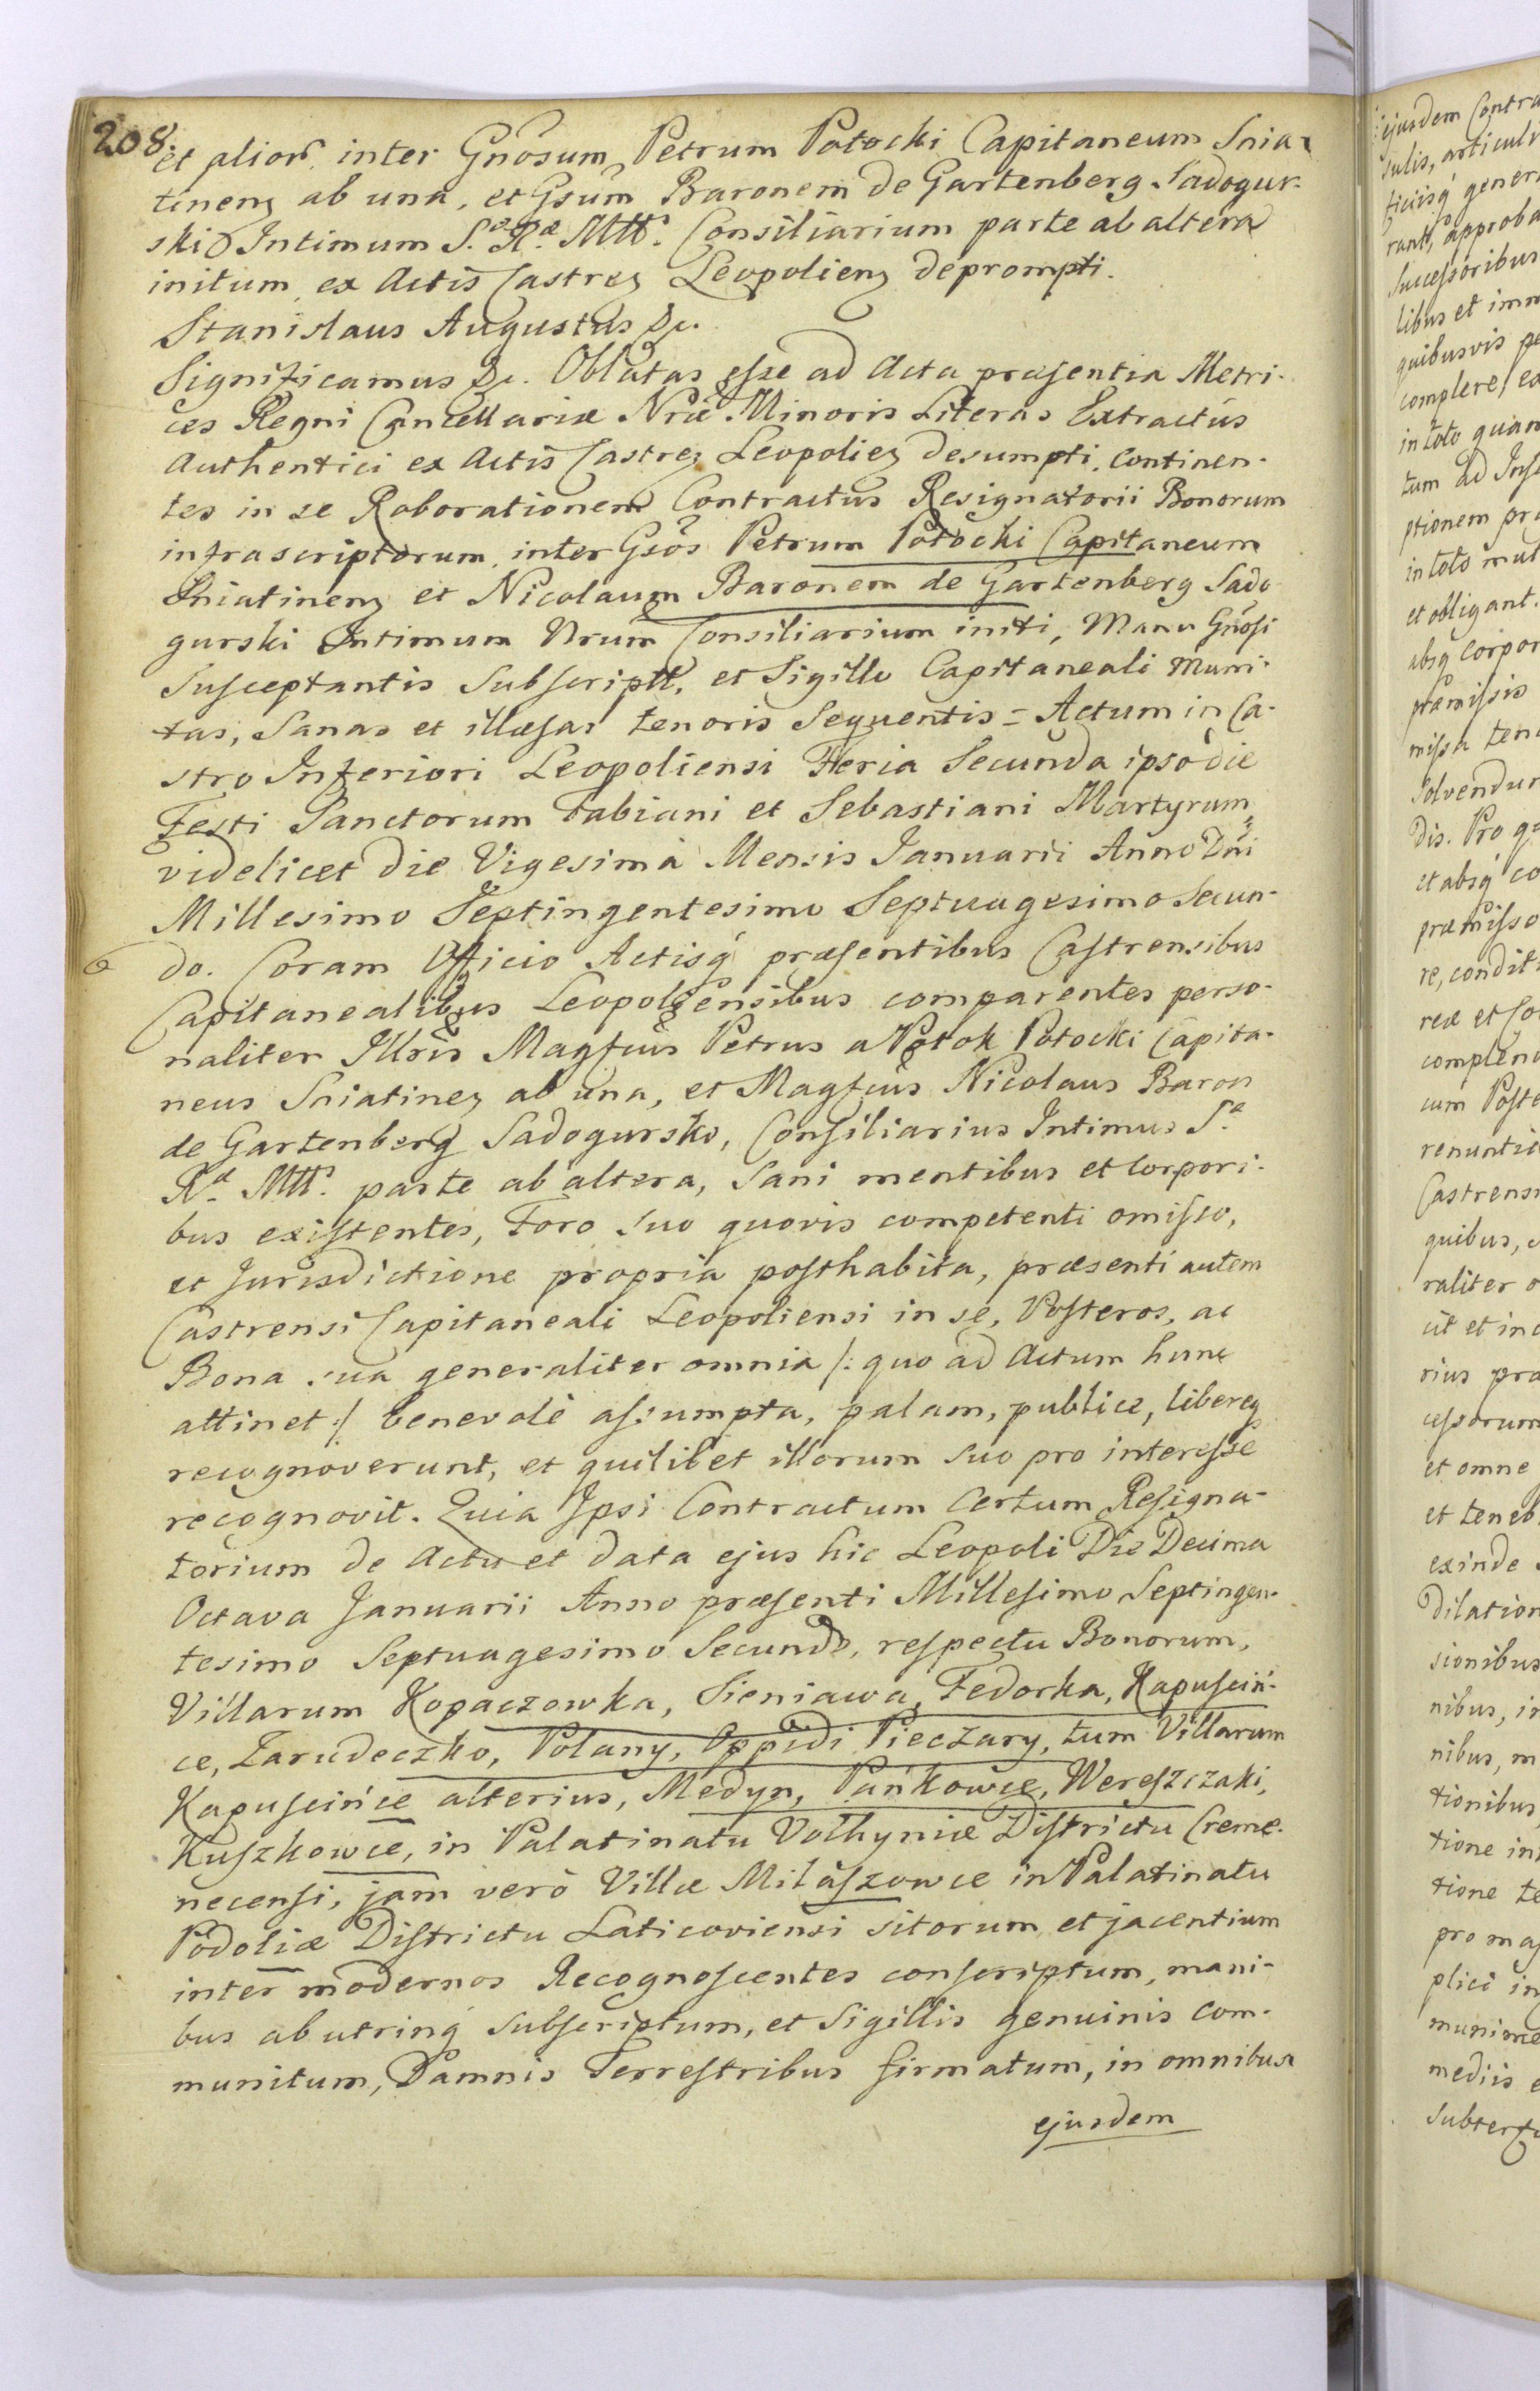 208.
et alior. inter Gnosum Petrum Potocki Capitaneum Snia-
tinens ab una, et Gsum Baronem de Gartenberg Sadogur-
ski Intimum S. Rae Mtt. Consiliarium parte ab altera
initum, ex Actis Castrens Leopoliens deprompti.
Stanislaus Augustus &c.
Significamus &c. Oblatas esse ad Acta præsentia Metri-
ces Regni Cancellariæ Nræ Minoris Literas Extractûs
Authentici ex Actis Castrens Leopoliens desumpti, continen-
tes in se Roborationem Contractus Resignatorii Bonorum
infrascriptorum, inter Gsos Petrum Potocki Capitaneum
Sniatinens et Nicolaum Baronem de Gartenberg Sado
gurski Intimum Nrum Consiliarium initi, Manu Gnosi
Susceptantis Subscriptt. et Sigillo Capitaneali Muni-
tas, Sanas et illæsas tenoris Sequentis = Actum in Ca-
stro Inferiori Leopoliensi Feria Secunda ipso die
Festi Sanctorum Fabiani et Sebastiani Martyrum,
videlicet die Vigesimâ Mensis Januarii Anno Dni
Millesimo Septingentesimo Septuagesimo Secun-
do. Coram Officio Actisq́ præsentibus Castrensibus
Capitanealibus Leopoliensibus comparentes perso-
naliter Illris Magfcus Petrus a Potok Potocki Capita-
neus Sniatinens ab una, et Magfcus Nicolaus Baron
de Gartenberg Sadogursko, Consiliarius Intimus S.
R. Mtt. parte ab altera, Sani mentibus et Corpori-
bus existentes, Foro suo quovis competenti omisso,
et Jurisdictione propria posthabita, præsenti autem
Castrensi Capitaneali Leopoliensi in se, Posteros, ac
Bona sua generaliter omnia /: quo ad Actum hunc
attinet :/ benevolè assumpta, palam, publice, libereq
recognoverunt, et quilibet illorum suo pro interesse
recognovit. Quia Ipsi Contractum Certum Resigna-
torium de Actu et data ejus hic Leopoli Die Decima
Octava Januarii Anno præsenti Millesimo Septingen-
tesimo Septuagesimo Secundo, respectu Bonorum,
Villarum Kopaczowka, Sieniawa, Fedorka, Kapuściń-
ce, Zarudeczko, Polany, Oppidi Pieczary, tum Villarum
Kapuscińce alterius, Medyn, Pańkowce, Wereszczaki,
Kuszkowce, in Palatinatu Volhyniæ Districtu Creme-
necensi, jam verò Villæ Milaszowce in Palatinatu
Podoliæ Districtu Laticoviensi sitorum et jacentium
inter modernos Recognoscentes conscriptum, mani-
bus ab utrinq́ subscriptum, et Sigillis genuinis com-
munitum, Damnis Terrestribus firmatum, in omnibus
ejusdem